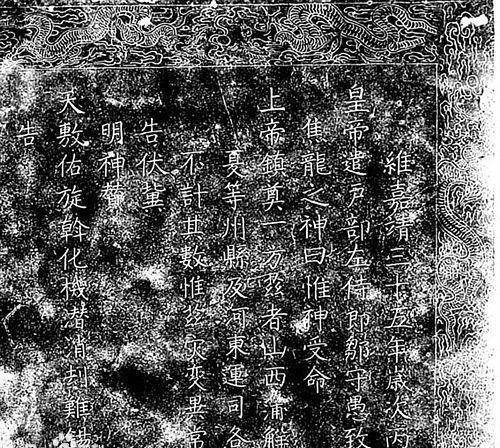 維嘉靖三十五年歲次丙
皇帝遣戶部左侍郎鄒守愚致
龍之神曰惟神受命
上帝鎮奠一方茲者山西蒲解
夏等州縣及河東運司各
不計其數惟茲灾變異常
告伏冀
明神
大敷佑旋斡化機潛消刦難
告